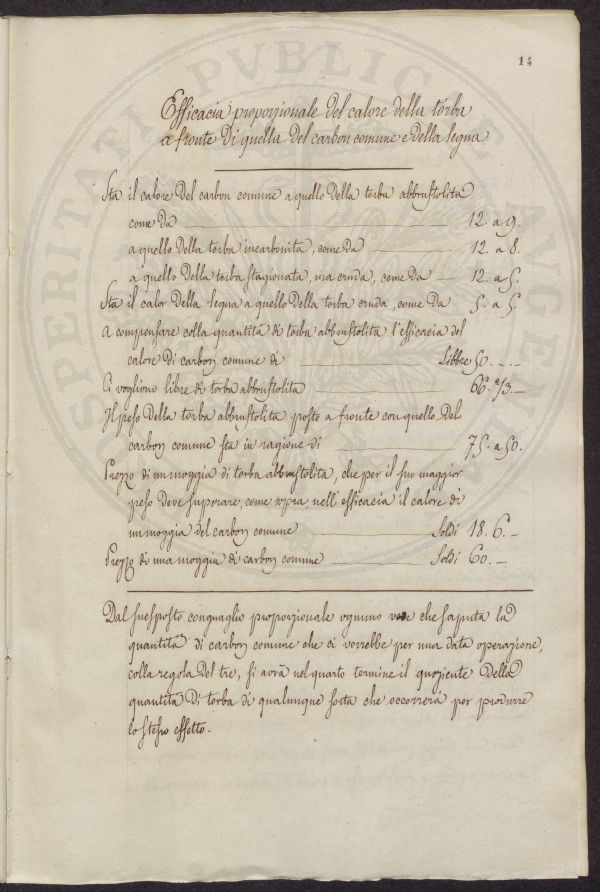 14
PROSPERITATI PUBLICAE AUGENDAE
Efficacia proporzionale del calore della torba
a fronte di quella del carbon comune e della legna
Sta il calore del carbon comune a quello della torba abbrustolita
come da 12. a 9.
a quello della torba incarbonita, come da 12. a 8.
a quello della torba stagionata, ma cruda, come da 12. a 5.
Sta il calor della legna a quello della torba cruda, come da 5. a 5.
A compensare colla quantità di torba abbrustolita l'efficacia del
calore di carbon comune di Libbre 50. -. -
Ci vogliono libre di torba abbrustolita 66. 2/3. -
Il peso della torba abbrustolita posto a fronte con quello del
carbon comune sta in ragione di 75. a 50.
Prezzo di un moggia di torba abbrustolita, che per il suo maggior
peso deve superare, come sopra, nell'efficacia il calore di
un moggia del carbon comune Soldi 18. 6. -
Prezzo di una moggia di carbon comune Soldi 60. -
Dal suesposto conguaglio proporzionale ognuno vede che saputa la
quantità di carbon comune che ci vorrebbe per una data operazione,
colla regola del tre, si avrà nel quarto termine il quoziente della
quantità di torba di qualunque sorta che occorrerà per produrre
lo stesso effetto.